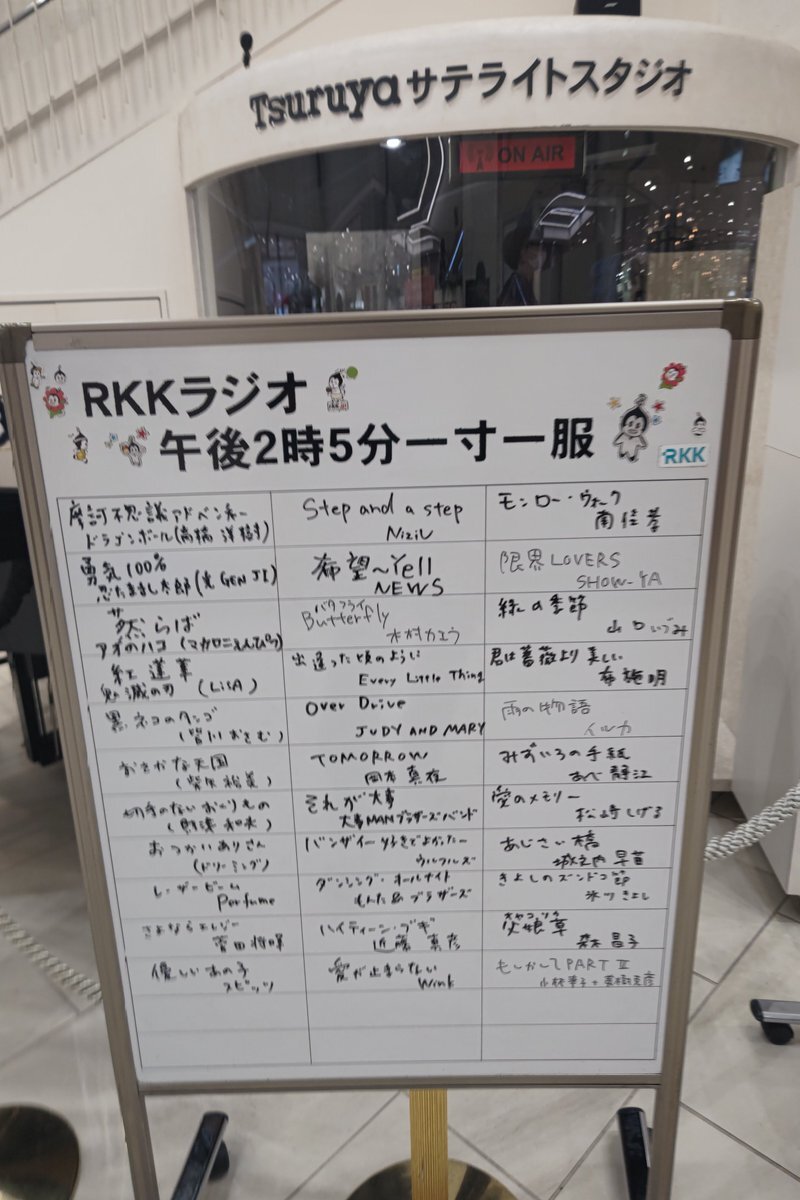 Tsuruyaサテライトスタジオ
ON AIR
RKKラジオ
午後2時5分一寸一服
RKK
摩訶不思議アドベンチャー
ドラゴンボール(高橋 洋樹)
勇気100%
忍たま乱太郎(光GENJI)
然らば
アオのハコ (マカロニえんぴつ)
紅蓮華
鬼滅の刃 (LiSA)
黒ネコのタンゴ
(皆川おさむ)
おさかな天国
(柴矢裕美)
切手のないおくりもの
(財津和夫)
おつかいありさん
(ドリーミング)
レーザービーム
Perfume
さよならエレジー
菅田将暉
優しいあの子
スピッツ
Step and a step
NiziU
希望〜Yell
NEWS
バタフライ
Butterfly
木村カエラ
出逢った頃のように
Every Little Thing
Over Drive
JUDY AND MARY
TOMORROW
岡本真夜
それが大事
大事MANブラザーズバンド
バンザイー好きでよかったー
ウルフルズ
ダンシング・オールナイト
もんた&ブラザーズ
ハイティーン・ブギ
近藤真彦
愛が止まらない
Wink
モンロー・ウォーク
南佳孝
限界LOVERS
SHOW-YA
緑の季節
山口いづみ
君は薔薇より美しい
布施明
雨の物語
イルカ
みずいろの手紙
あべ静江
愛のメモリー
松崎しげる
あじさい橋
城之内早苗
きよしのズンドコ節
氷川きよし
父娘草
森昌子
もしかしてPART II
小林幸子+美樹克彦